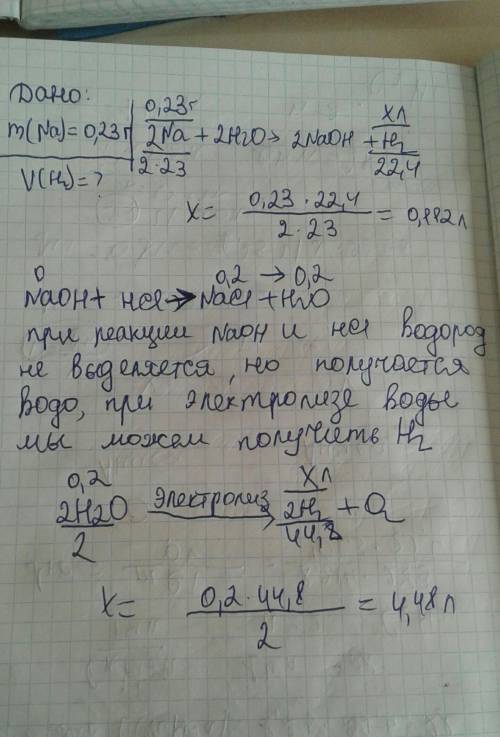 Дано:
m(Na)=0,23г
V(H₂)=?
0,23г хл
2Na + 2H2O → 2NaOH + H₂
2·23 22,4
х= 0,23·22,4 / 2·23 = 0,112л
0,2 → 0,2
NaOH + HCl → NaCl + H2O
при реакции NaOH и HCl водород
не выделяется, но получается
водо, при электролизе воды
мы можем получить H₂
0,2 хл
2H2O электролиз 2H₂ + O₂
2 44,8
х= 0,2·44,8 / 2 = 4,48л